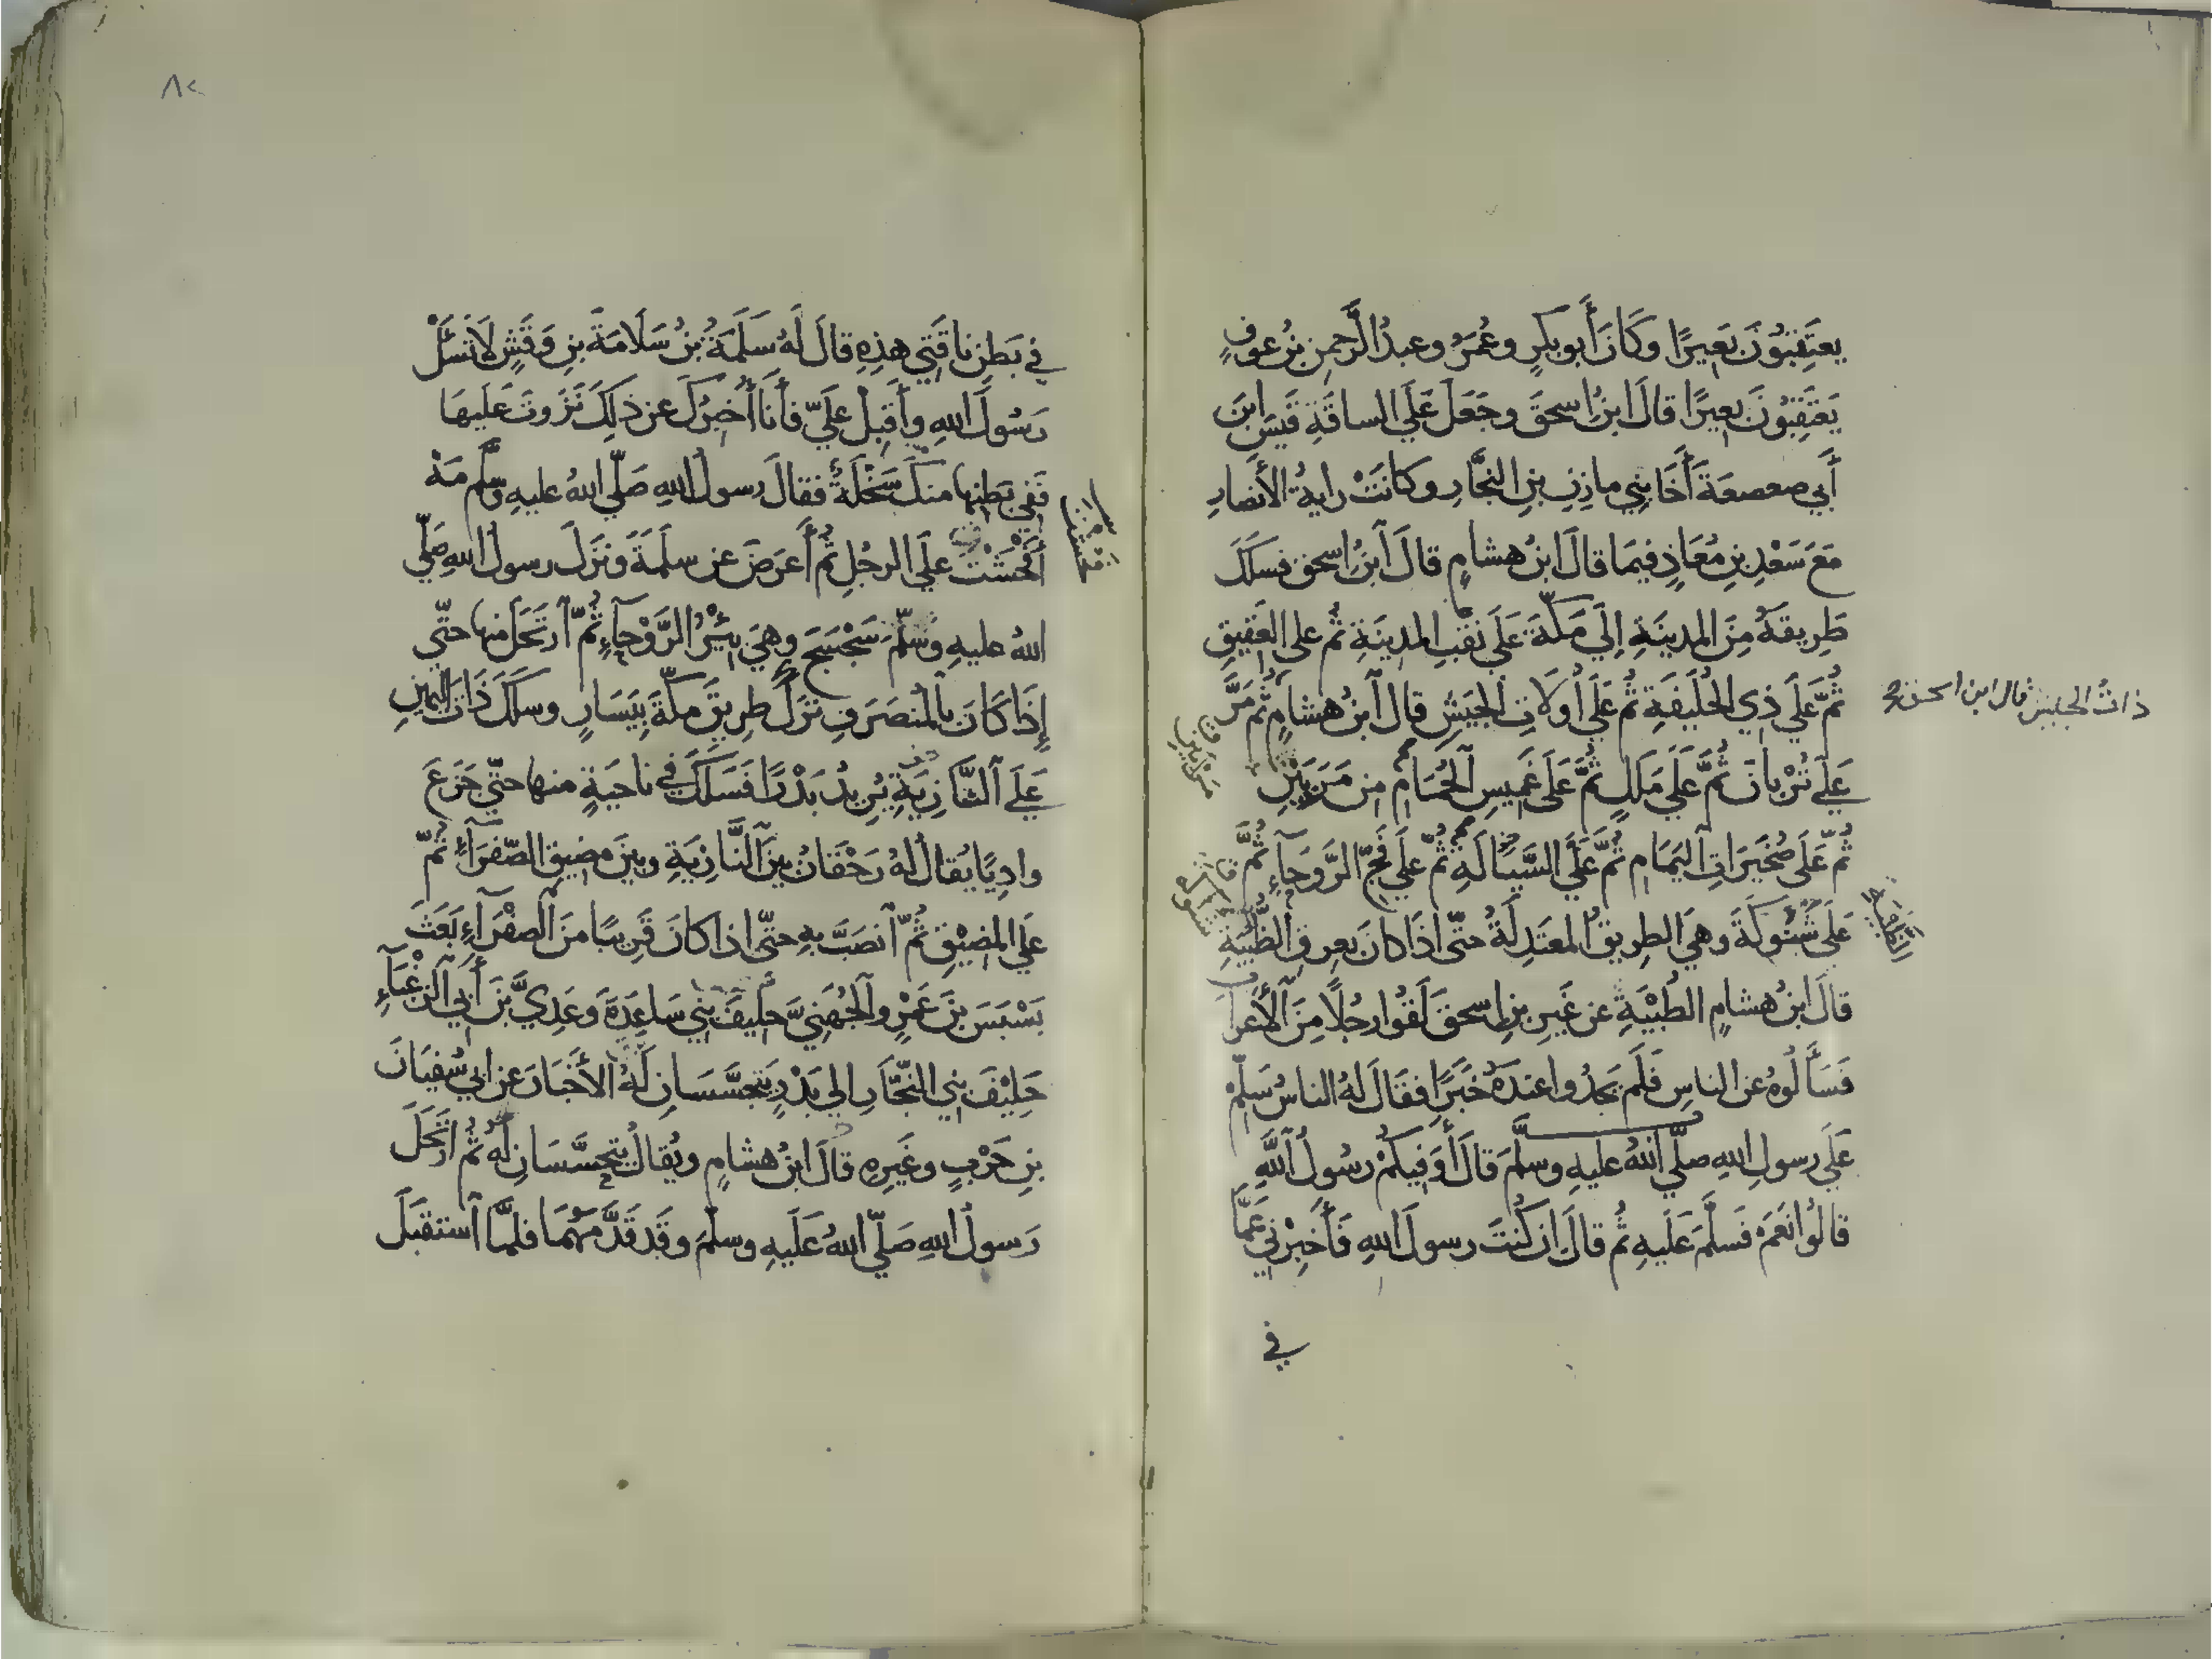 يعتَقِبُونَ بَعِيرًا وَكَانَ أَبو بكرٍ وعُمَرُ وعبدُ الرَّحمنِ بنُ عوفٍ
يَعتَقِبُونَ بعِيرًا قالَ ابنُ اسحقَ وجَعَلَ عَلَي الساقَةِ قَيسَ ابنَ
أَبي صعصعَةَ أَخَا بَنِي مازنِ بنِ النجَّارِ وكانَتْ رايةُ الأَنصارِ
مَعَ سَعْدِ بنِ مُعَاذٍ فيمَا قالَ ابنُ هشامٍ قالَ ابنُ اسحق فسَلَكَ
طَرِيقهُ مِنَ المدينَةِ إلَي مَكّةَ عَلَي نَقْبِ المدينَةِ ثُم علي العَقِيقِ
ثُمَّ عَلَي ذِي الحُلَيفَةِ ثُم عَلَي أُولَاتِ الجَيشِ قال ابنُ هشامٍ ثُم مَرَّ
ذاتُ الجيش قال ابن اسحق
عَلَي تُرْبانَ ثُمَّ عَلَي مَلَلٍ ثُمَّ عَلَي غَمِيسِ الحُمَامِ من مَرَيَيْنِ
ثُمّ عَلَي صُخَيرَاتِ اليَمَامِ ثُمَّ عَلَي السَّيَالَةِ ثُمّ علَي فَجِّ الرَّوحَآءِ ثُمَّ
عَلَي شَنُوكَةَ وهيَ الطريقُ المعتَدِلَةُ حتّى اذَا كانَ بعِرقِ الظُّبْيَةِ
قالَ ابنُ هشامٍ الظبْيَةِ عن غَيرِ بنِ اسحقَ لَقُوا رجُلًا مِنَ الأَعرابِ
فَسَأَلُوهُ عن الناسِ فَلَم يَجدُوا عندَهُ خَبَرًا فقَالَ لهُ الناسُ سَلِّمْ
عَلَي رسولِ اللهِ صلّي اللهُ عليهِ وسلَّمَ قالَ أَوَفِيكُمْ رسُولُ اللَّهِ
قالُوا نَعَمْ فَسَلَّمَ عَلَيهِ ثُم قالَ ان كُنتَ رسولَ اللهِ فَأَخبِرْنِي عَمَّا
في
٨٢
في بَطنِ ناقَتِي هذِهِ قالَ لَهُ سَلَمَةُ بنُ سَلَامَةَ بنِ وَقَشٍ لَا تَسَلْ
رَسُولَ اللهِ وأَقبِلْ عَلَيّ فأَنا أُخبِرُكَ عن ذلِكَ نَزَوتَ عَلَيهَا
فَفِي بَطنِها منكَ سَخْلَةٌ فقالَ رسولُ اللهِ صَلّي اللهُ عليهِ وسَلَّم مَهْ
أَفْحَشْتَ علَي الرجُلِ ثُم أَعرَضَ عن سلَمَةَ ونزَلَ رسولُ اللهِ صَلّي
اللهُ عليهِ وسَلّمَ سَجْسَجَ وهيَ بِئرُ الرَّوْحآءِ ثُمّ ارتَحَلَ منها حتّي
إذَا كَانَ بالمُنصَرَفِ تَرَكَ طرِيقَ مكّةَ بِيَسَارٍ وسلَكَ ذَاتَ اليَمينِ
عَلَي النَّازِيَةِ يُرِيدُ بَدْرًا فَسَلَكَ في ناحيَةٍ منها حتّي جَزَعَ
وادِيًا يُقالُ لهُ رَحْقَانُ بينَ النَّازيَةِ وبينَ مضِيقِ الصّفرَآءِ ثُمّ
علَي المضِيْقِ ثُمّ انصَبَّ بهِ حتّى اذا كانَ قَرِيبًا منَ الصفْرَآءِ بَعَثَ
بَسْبَسَ بنَ عَمْرٍو الجُهَنِيَّ حليفَ بَنِي سَاعِدَةَ وعَدِيَّ بْنَ أَبِي الزغْبآءِ
حَلِيْفَ بَنِي النَّجّارِ الي بَدْرٍ يَتجَسَّسَانِ لَهُ الأَخْبَارَ عن ابي سُفيَانَ
بنِ حَرْبٍ وغَيرِهِ قالَ ابنُ هشامٍ ويُقالُ يتحسَّسَانِ لهُ ثُم ارتَحَلَ
رَسولُ اللهِ صَلّي اللهُ عَلَيهِ وسلّمَ وقَد قَدَّمَهُمَا فلمَّا استقبَلَ